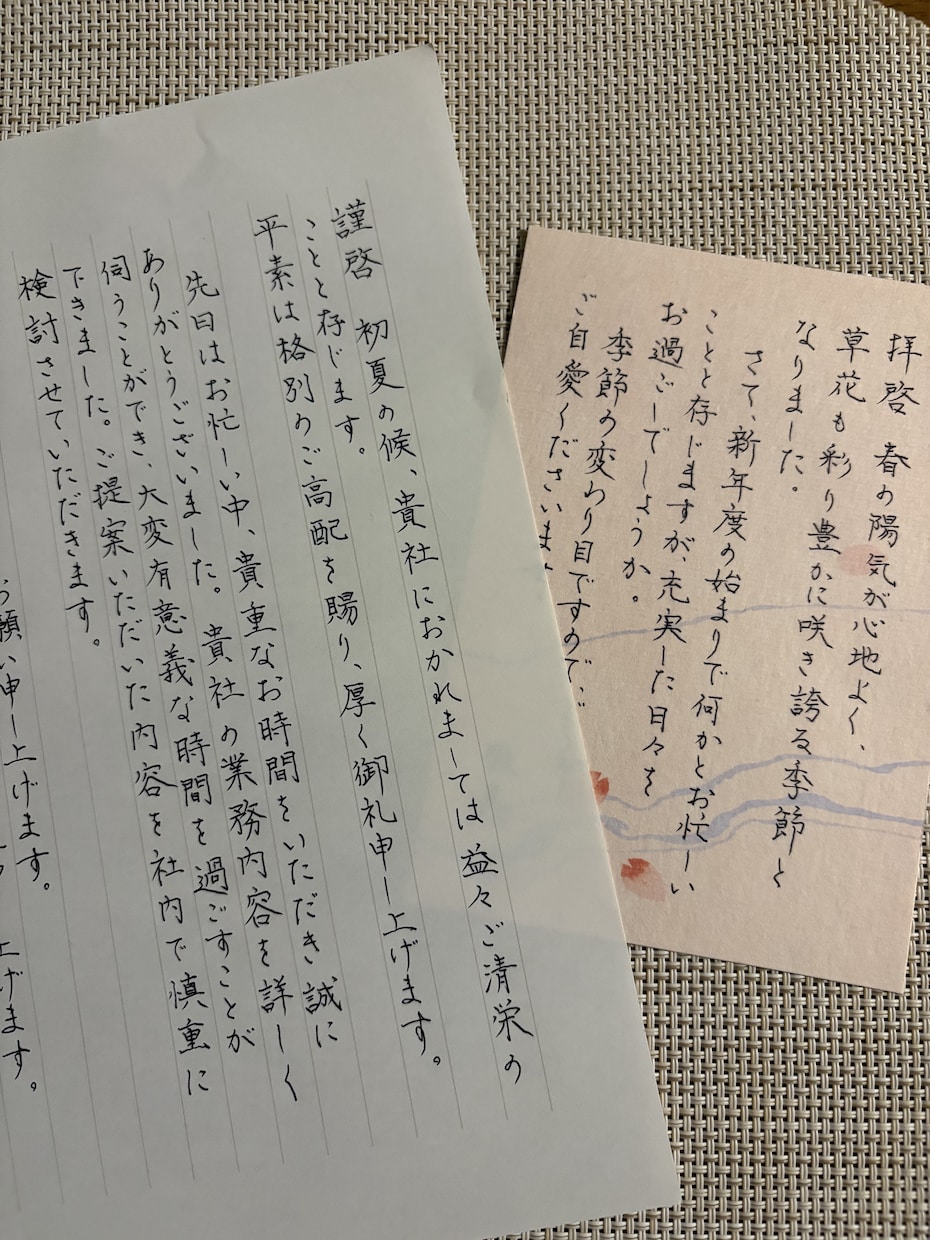 拝啓 春の陽気が心地よく、
草花も彩り豊かに咲き誇る季節と
なりました。
さて、新年度の始まりで何かとお忙しい
ことと存じますが、充実した日々を
お過ごしでしょうか。
季節の変わり目ですので
ご自愛くださいま
謹啓 初夏の候、貴社におかれましては益々ご清栄の
ことと存じます。
平素は格別のご高配を賜り、厚く御礼申し上げます。
先日はお忙しい中、貴重なお時間をいただき誠に
ありがとうございました。貴社の業務内容を詳しく
伺うことができ、大変有意義な時間を過ごすことが
できました。ご提案いただいた内容を社内で慎重に
検討させていただきます。
願い申し上げます。
上げます。